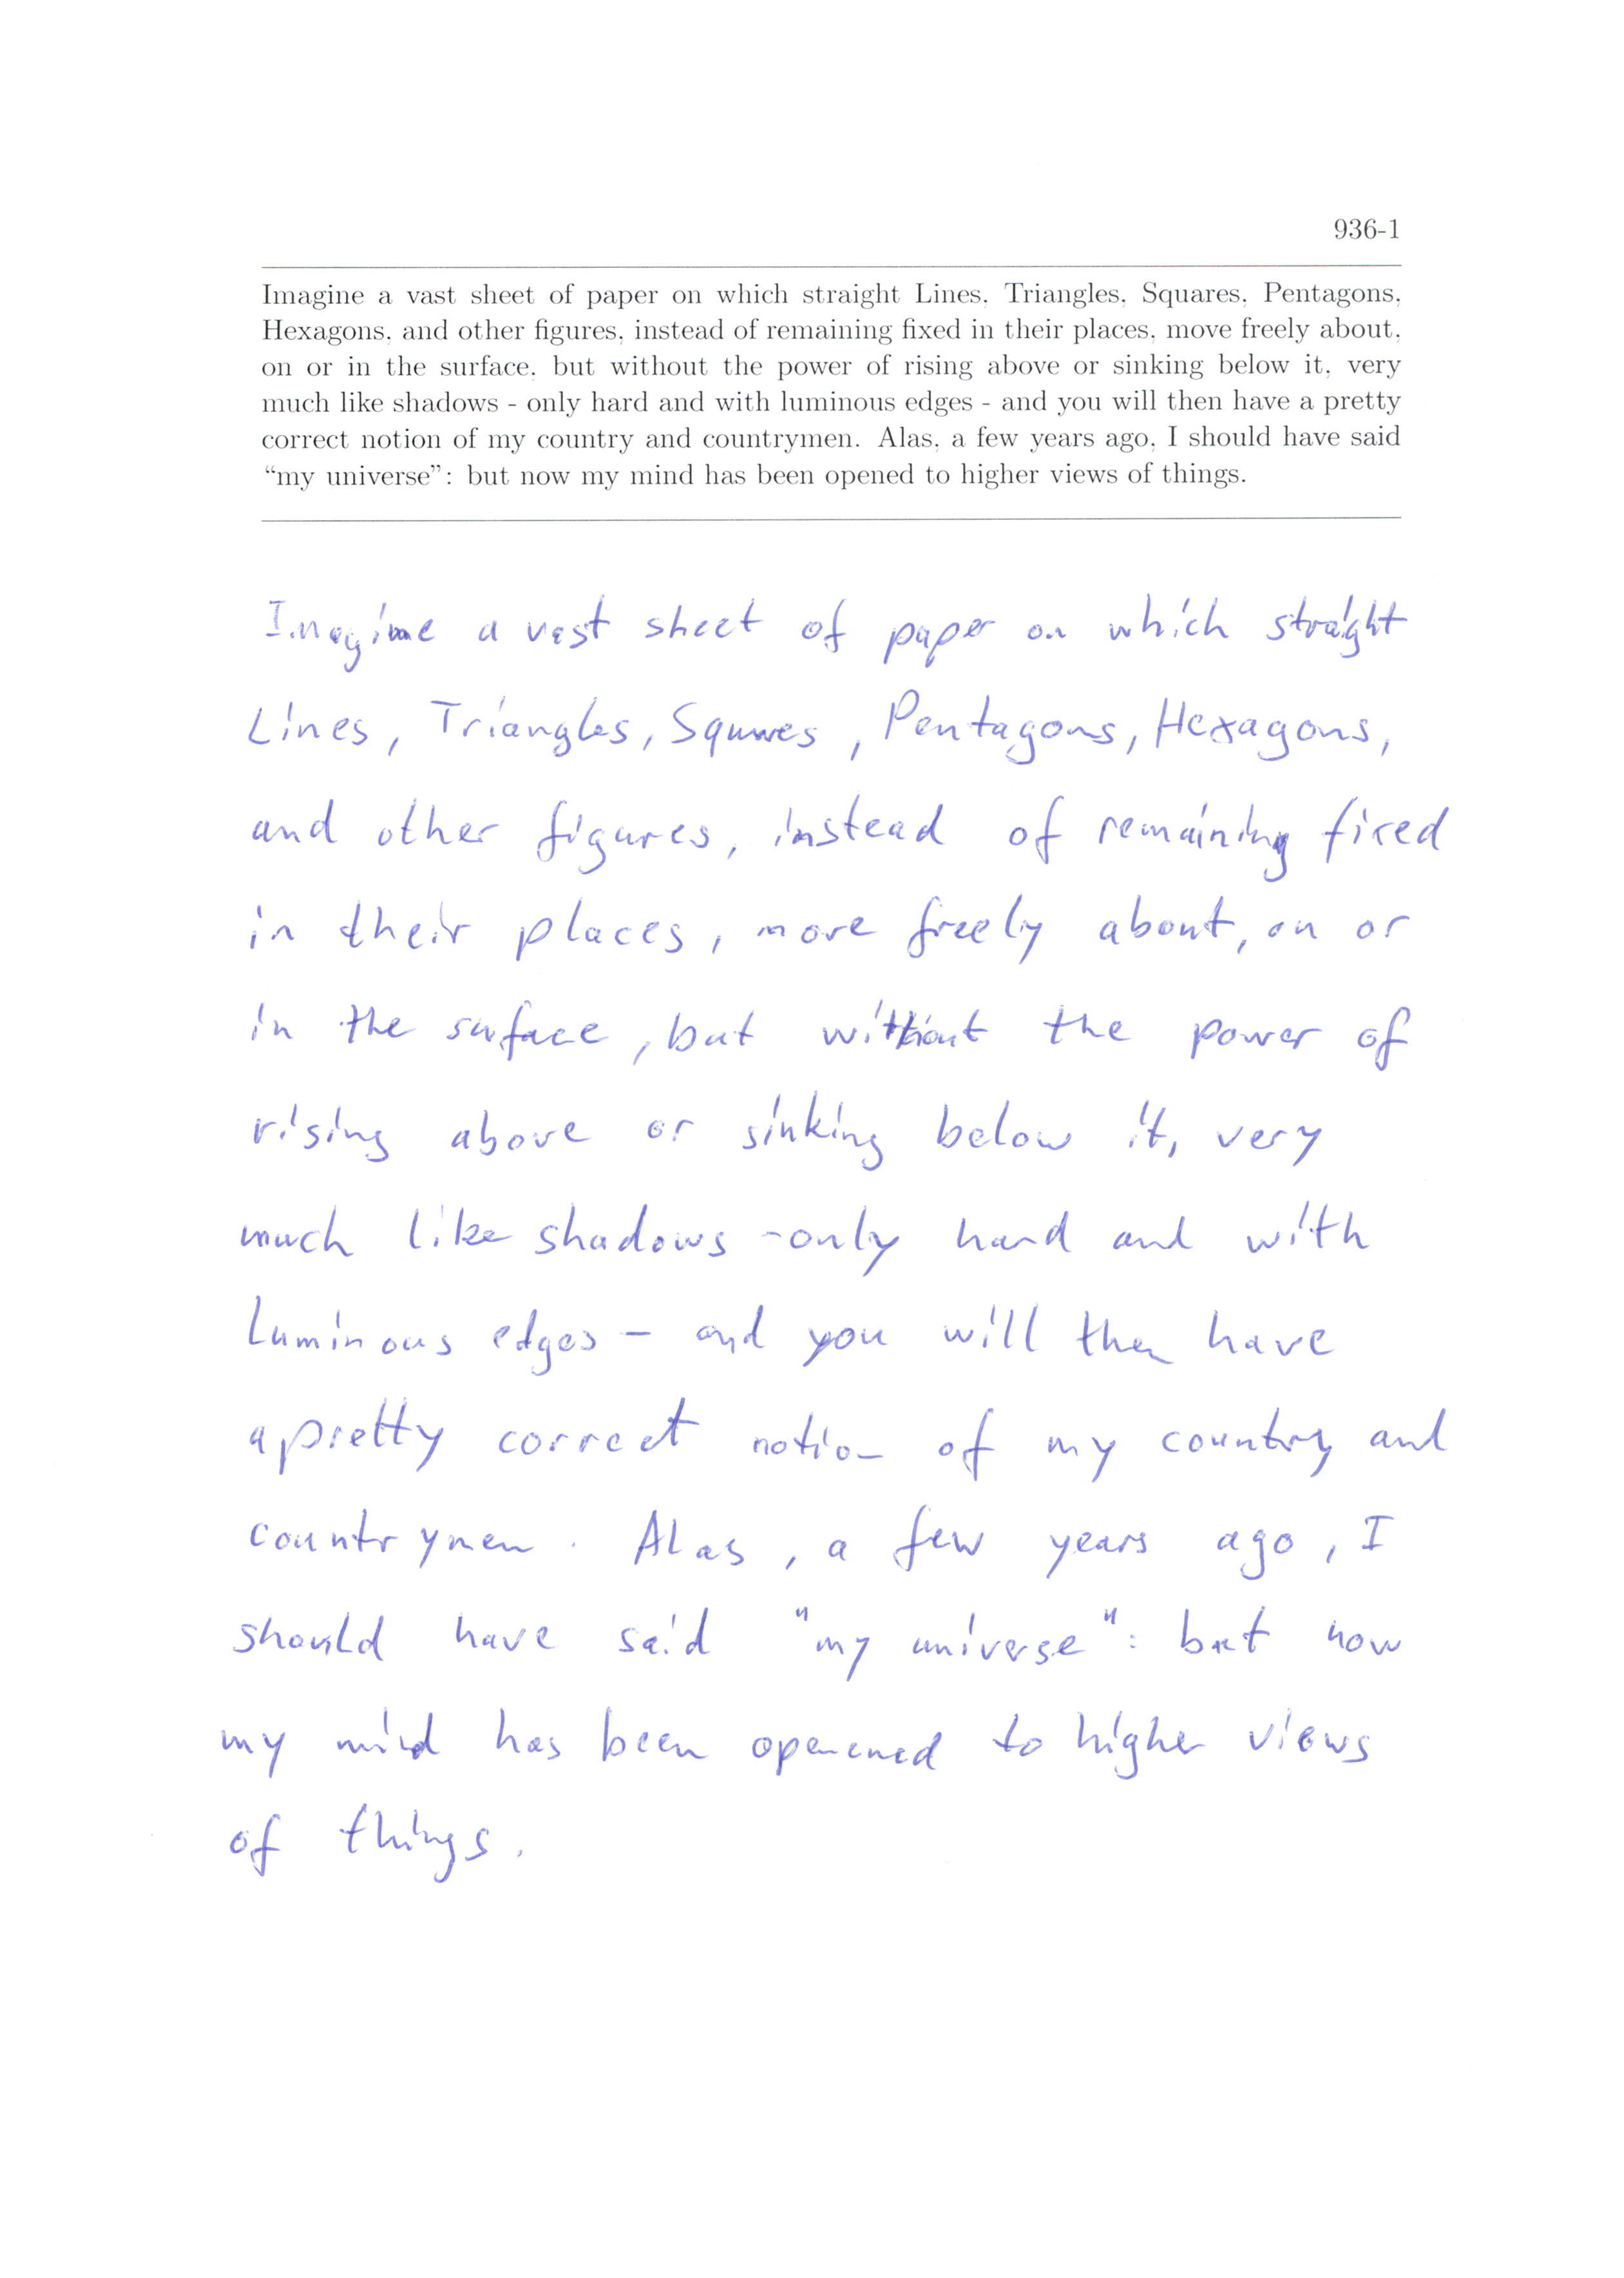 936-1
Imagine a vast sheet of paper on which straight Lines, Triangles, Squares, Pentagons,
Hexagons, and other figures, instead of remaining fixed in their places, move freely about,
on or in the surface, but without the power of rising above or sinking below it, very
much like shadows - only hard and with luminous edges - and you will then have a pretty
correct notion of my country and countrymen. Alas, a few years ago, I should have said
“my universe”: but now my mind has been opened to higher views of things.
Imagine a vast sheet of paper on which straight
Lines, Triangles, Squares, Pentagons, Hexagons,
and other figures, instead of remaining fixed
in their places, move freely about, on or
in the surface, but without the power of
rising above or sinking below it, very
much like shadows - only hard and with
luminous edges - and you will then have
a pretty correct notion of my country and
countrymen. Alas, a few years ago, I
should have said "my universe": but now
my mind has been openened to higher views
of things.